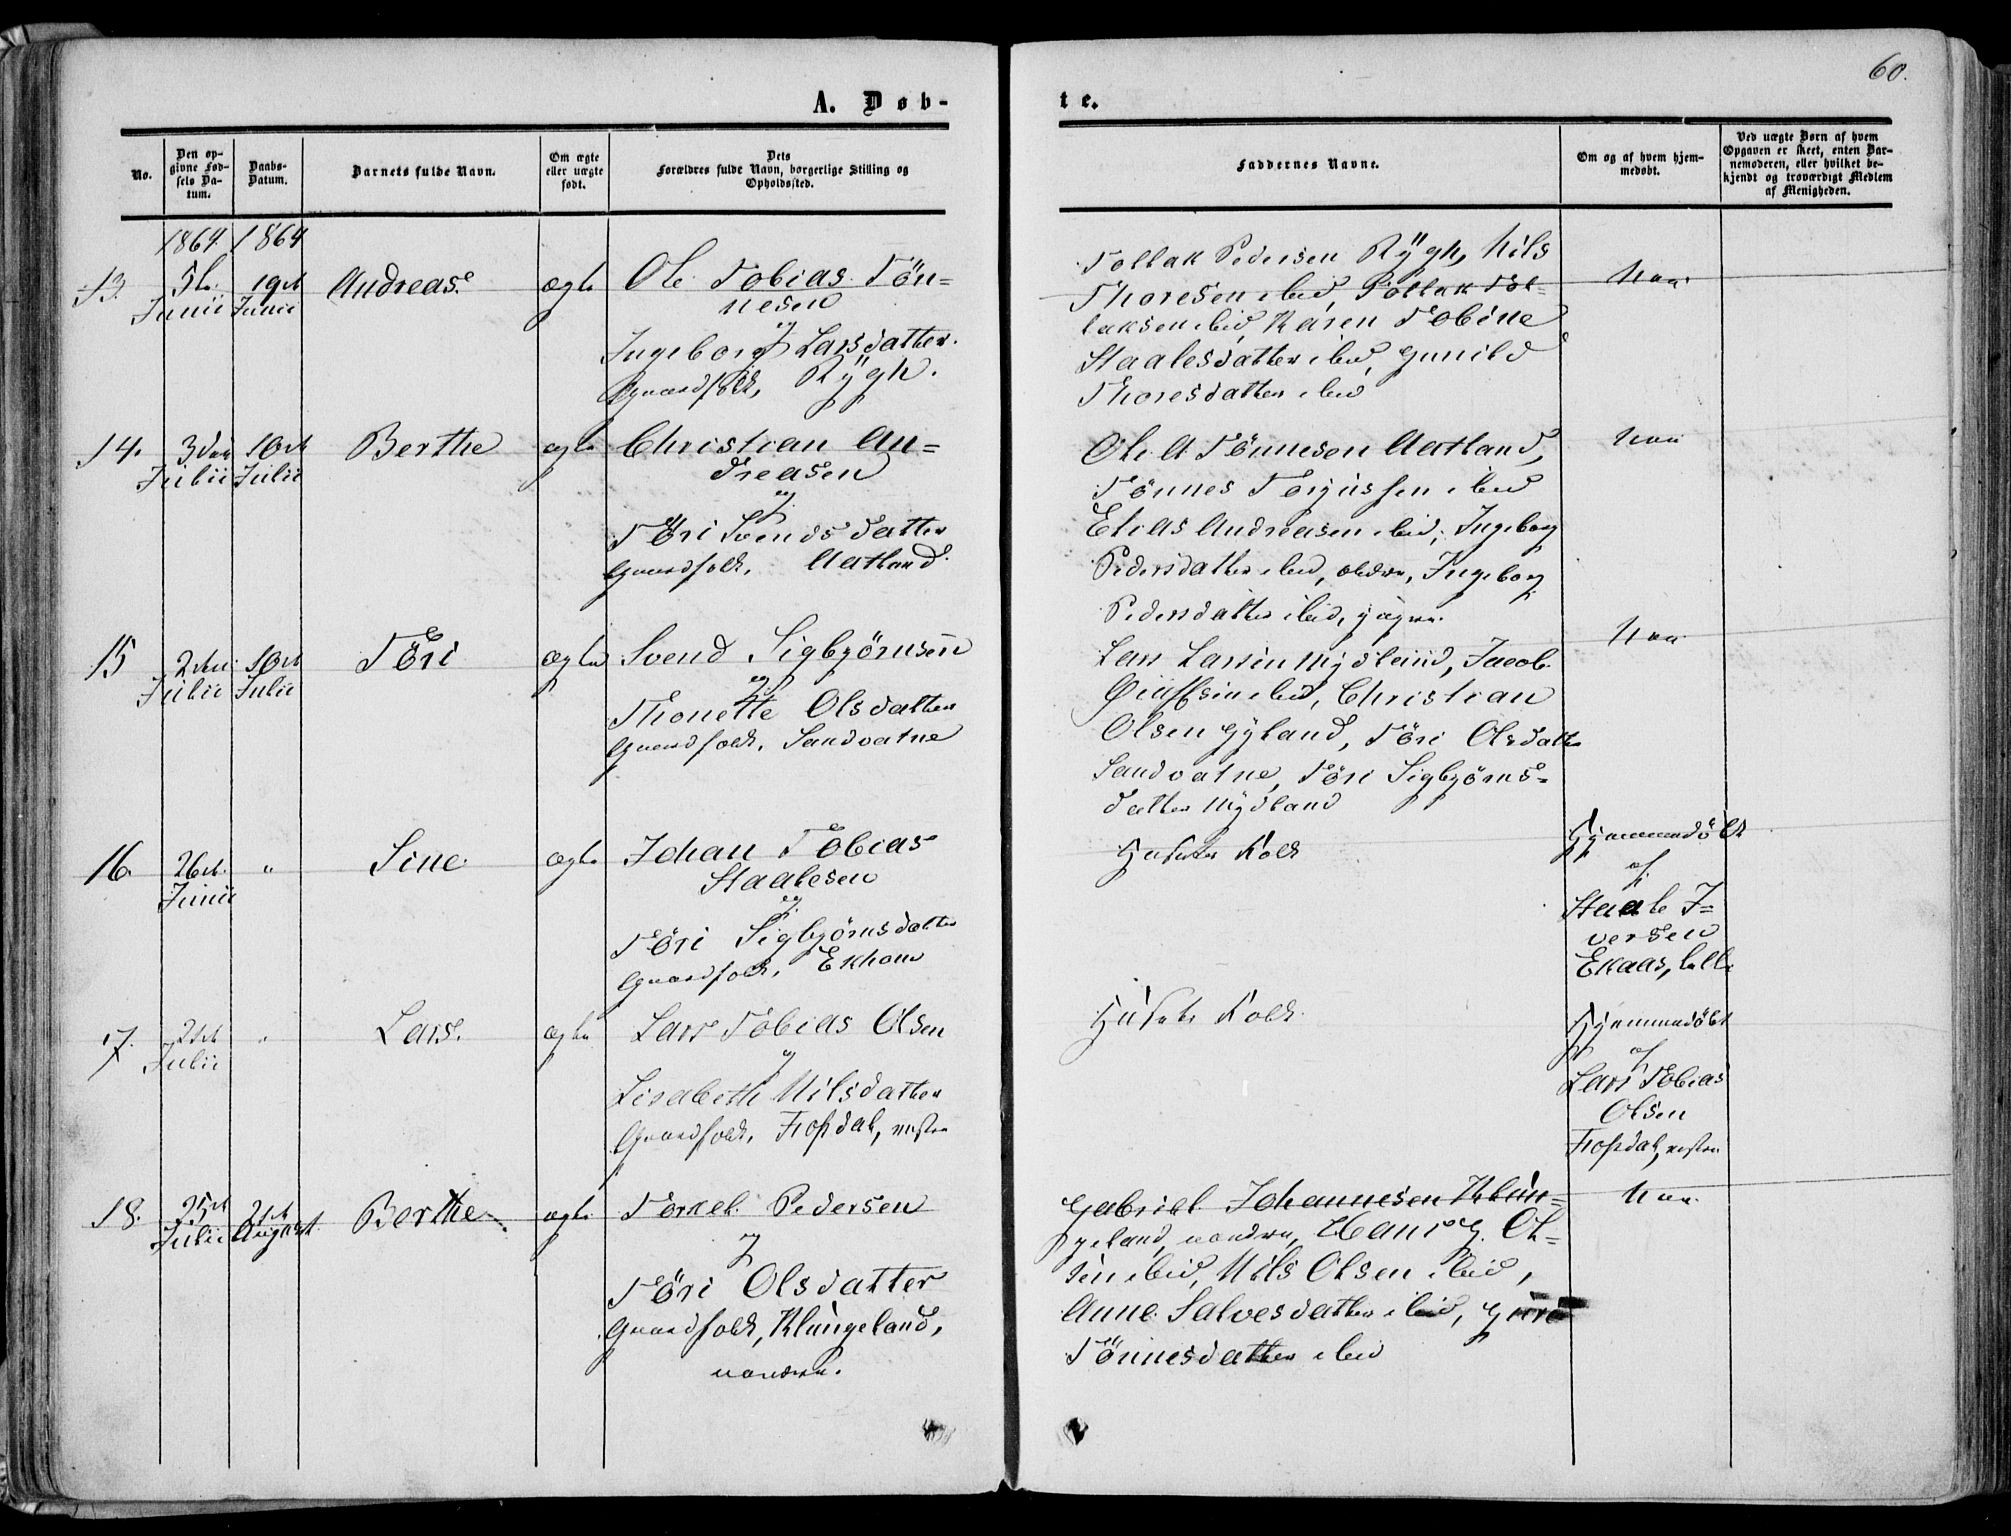 60.
A. Døb-
te.
No.
Den op-
givne Fød-
sels Da-
tum.
Daabs-
Datum.
Barnets fulde Navn.
Om ægte
eller uægte
født.
Dets
Forældres fulde Navn, borgerlige Stilling og
Opholdssted.
Faddernes Navne.
Om og af hvem hjem-
medøbt.
Ved uægte Børn af hvem
Opgaven er skeet, enten Bar-
nemoderen, eller hvilket be-
kjendt og troværdigt Medlem
af Menigheden.
1864. 1864
13. 5te Junii 19de Junii Andreas. ægte
Ole Tobias Tön=
nesen
og
Ingeborg Larsdatter.
Gaardfolk, Rÿgh.
Tollak Pedersen Rÿgh, Nils
Thoresen ibid, Tollak Tol=
laksen ibid, Karen Tobine
Staalesdatter ibid, Gunild
Thoresdatter ibid
14. Julii 10de Julii Berthe ægte
Christian An=
dreasen
og
Töri Svendsdatter
Gaardfolk. Aatland.
Ole A. Tönnesen Aatland,
Tönnes Torjussen ibid
Elias Andreasen ibid, Ingeborg
Pedersdatter ibid, ældre, Ingeborg
Pedersdatter ibid, yngre.
15 2den Julii 10de Julii Töri ægte
Svend Sigbjörnsen
og
Thonette Olsdatter
Gaardfolk. Sandvatne
Lars Larsen Mydland, Jacob
ibid, Christian
Olsen Gyland, Töri Olsdatter
Sandvatne, Töri Sigbjörns=
datter Mydland
16. 26de Junii " Sine. ægte
Johan Tobias
Staalesen
og
Töri Sigbjörnsdatter
Gaardfolk.
Husets Folk
Hjemmedöbt
af
Staale I=
versen
Ekaas, lille
17. 21de Julii " Lars. ægte
Lars Tobias Olsen
og
Lisabeth Nilsdatter
Gaardfolk. Frosdal, vestre
Husets Folk.
Hjemmedöbt
af
Lars Tobias
Olsen
Frosdal, vestre
18. Julii 21de August. Berthe. ægte
Torkel Pedersen
og
Töri Olsdatter
Gaardfolk, Klungeland,
nordre.
Gabriel Johannesen Klun=
geland, nordre, Hans G. Ol=
sen ibid, Nils Olsen ibid,
Anne Salvesdatter ibid,
Tönnesdatter ibid